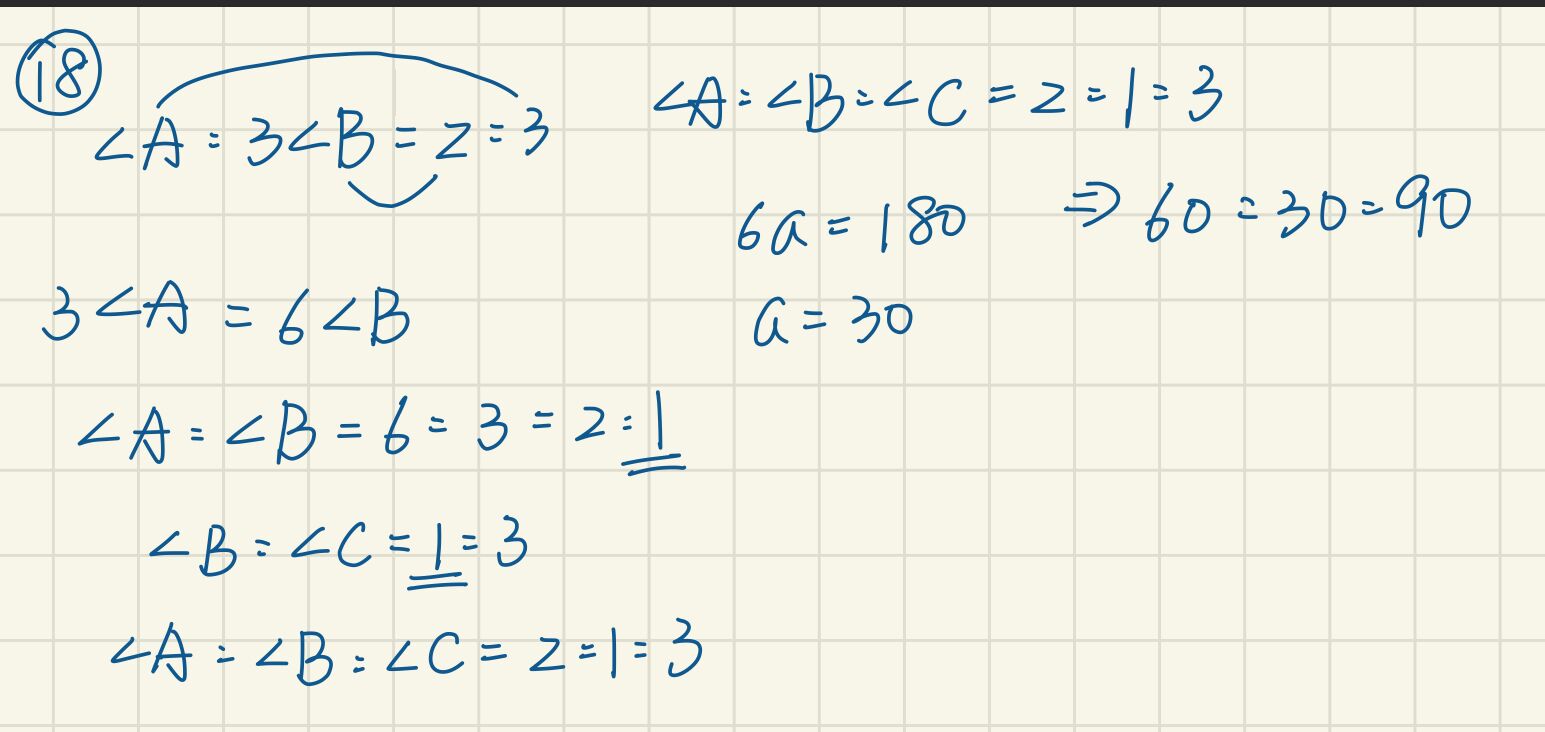 18
∠A : 3∠B = 2 : 3
3∠A = 6∠B
∠A : ∠B = 6 : 3 = 2 : 1
∠B : ∠C = 1 : 3
∠A : ∠B : ∠C = 2 : 1 : 3
∠A : ∠B : ∠C = 2 : 1 : 3
6a = 180 ⇒ 60 : 30 : 90
a = 30